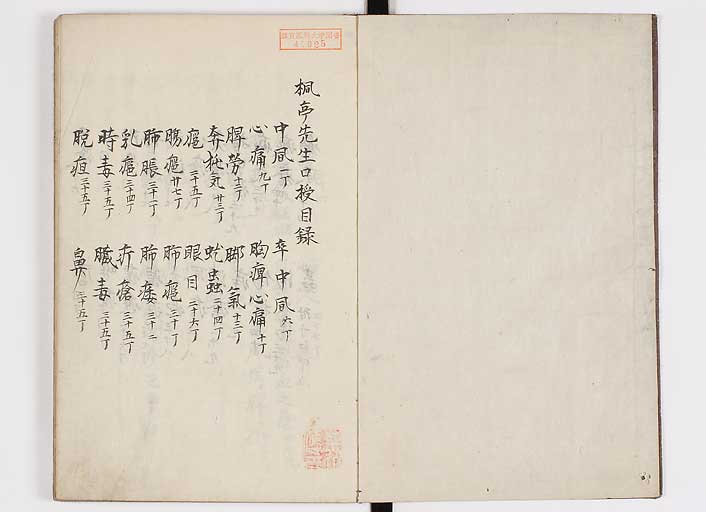 楓亭先生口授目録
中風 一丁 卒中風 六丁
心痛 九丁 胸痺心痛 十丁
脾労 十二丁 脚氣 十三丁
奔㹠氣 廿三丁 蚘蟲 二十四丁
癰 二十五丁 眼目 二十六丁
腸癰 廿七丁 肺癰 三十丁
肺脹 三十一丁 肺痿 三十二
乳癰 三十四丁 疔瘡 三十五丁
時毒 三十五丁 臓毒 三十五丁
脱疽 三十五丁 鼻 三十五丁